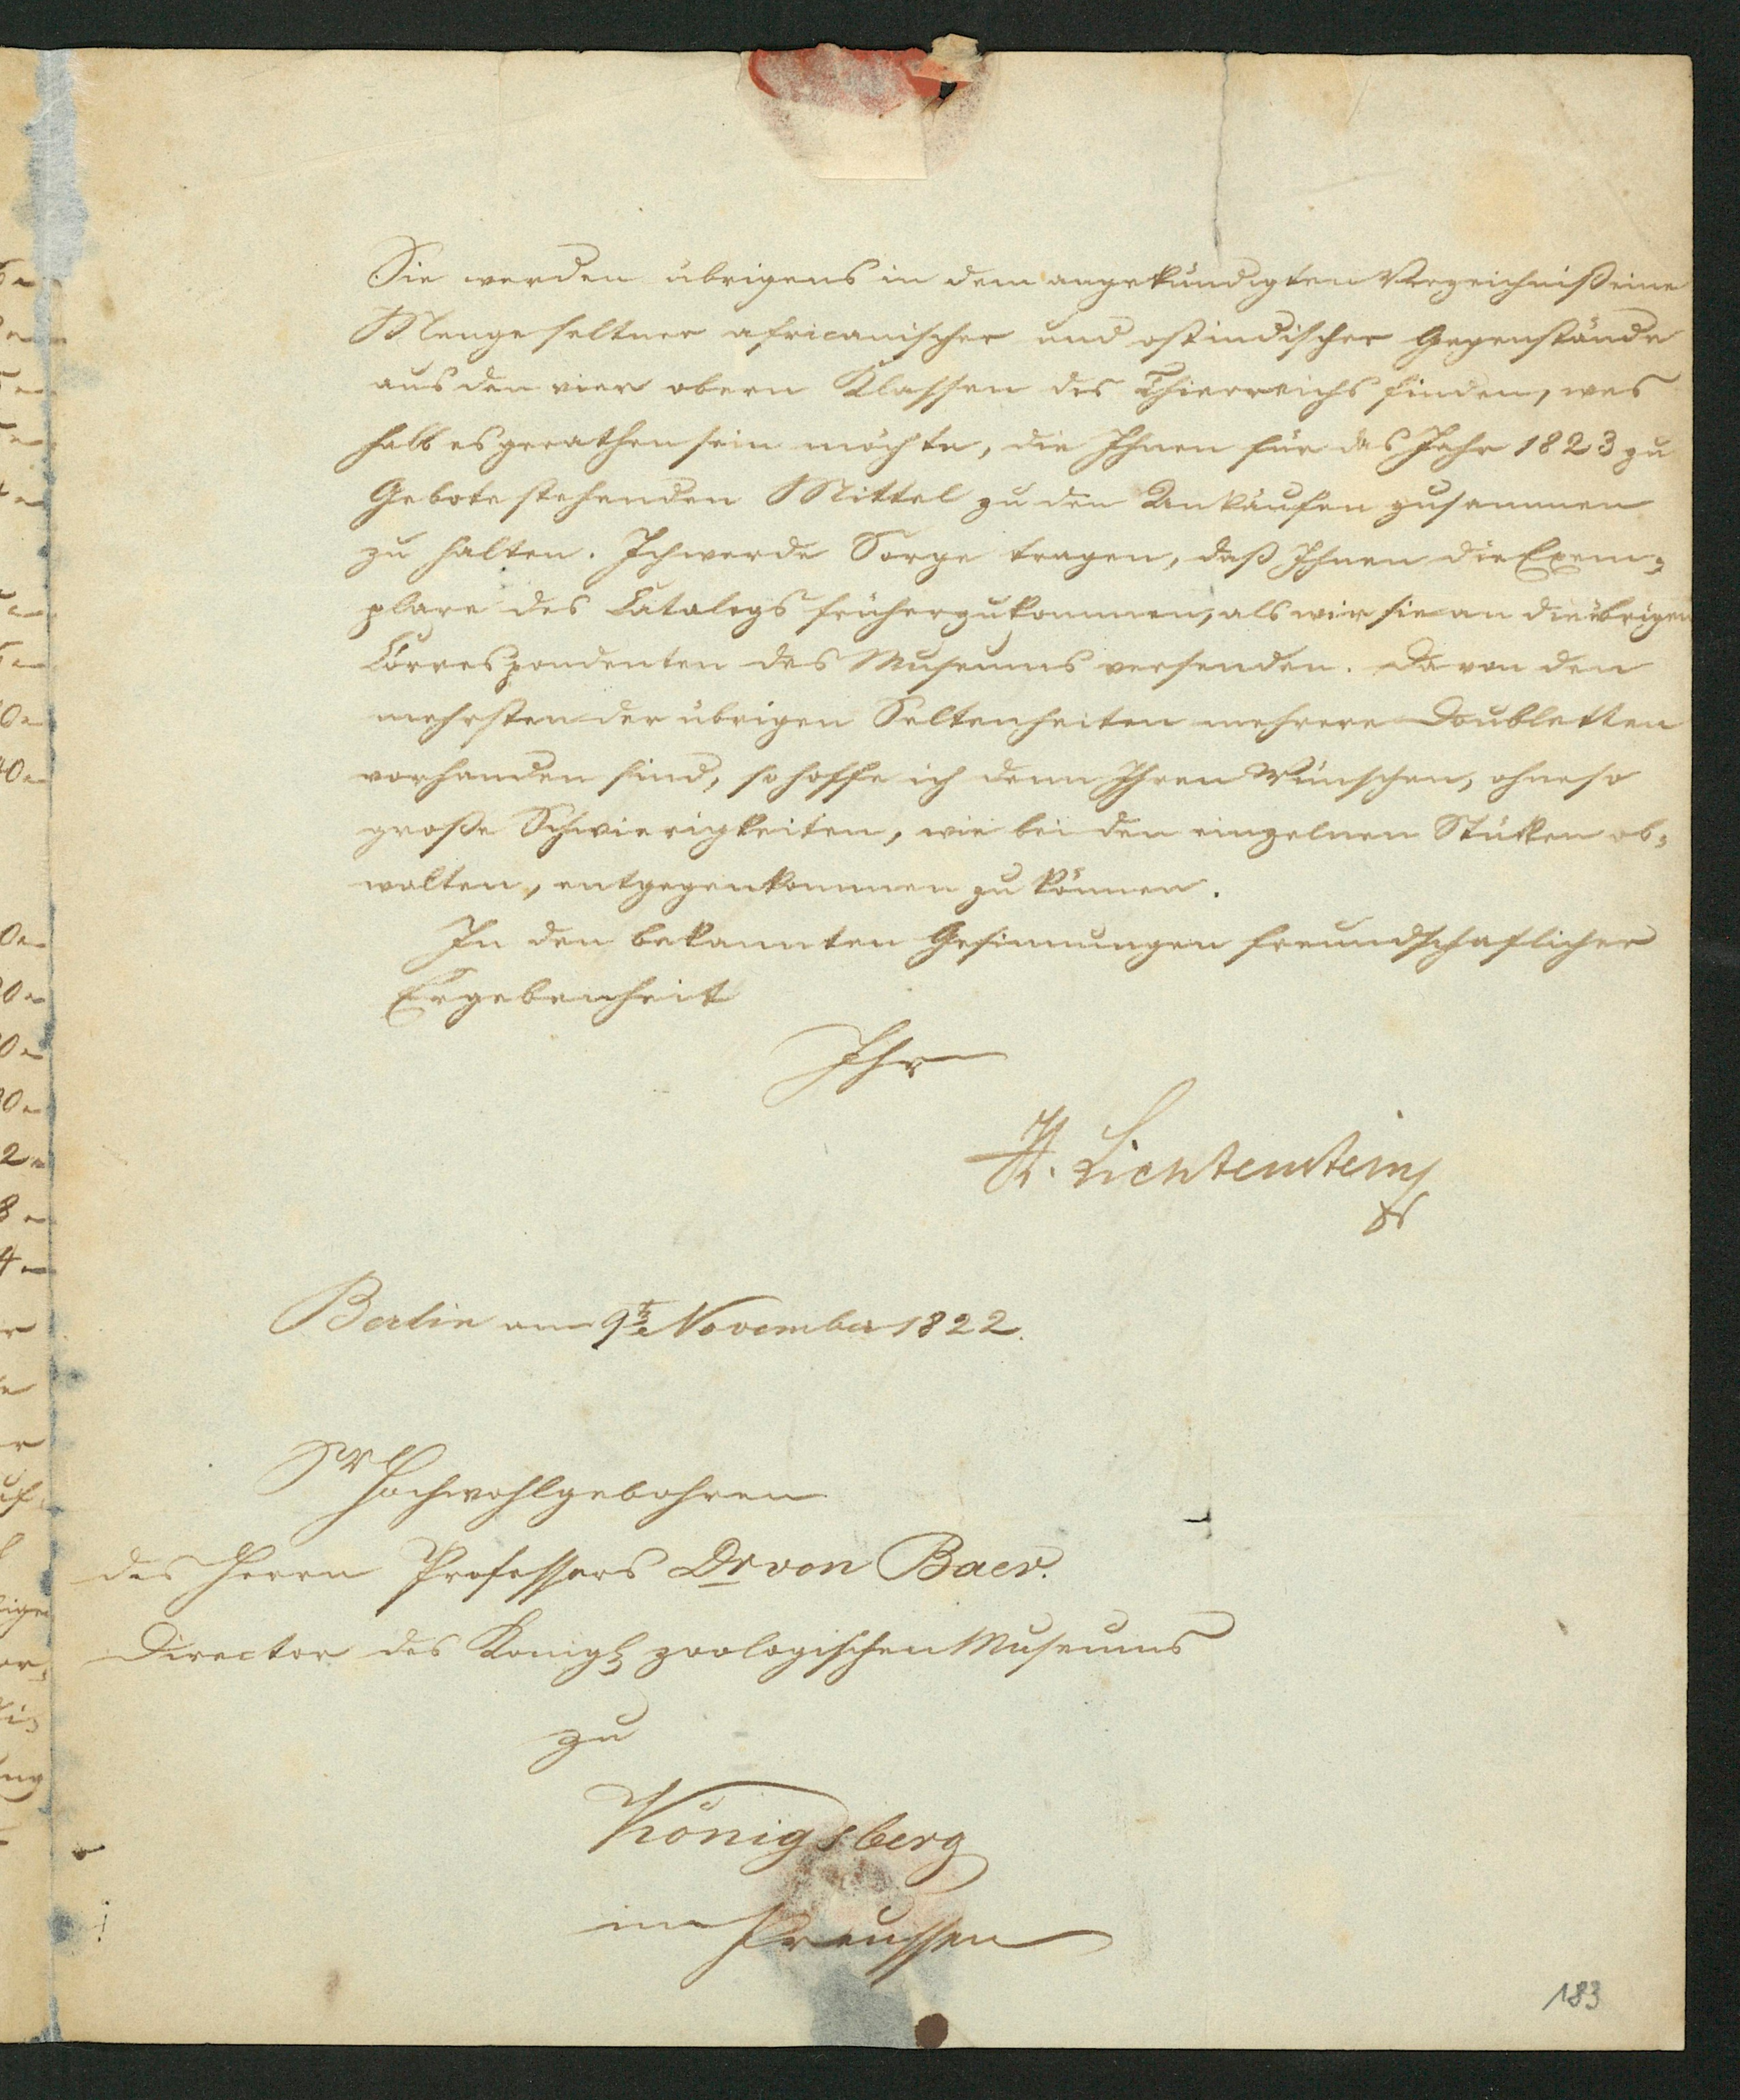 Sie werden übrigens in dem angekündigten Verzeichniß eine
Menge seltner africanischer und ostindischer Gegenstände
aus den vier obern Klassen des Thierreichs finden, wes
halb es gerathen sein möchte, die Ihnen für das Jahr 1823 zu
Gebote stehenden Mittel zu den Ankäufen zusammen
zu halten. Ich werde Sorge tragen, daß Ihnen die Exem-
plare des Catalogs früher zukommen, als wir sie an die übrigen
Correspondenten des Museums versenden. Da von den
mehrsten der übrigen Seltenheiten mehrere Doubletten
vorhanden sind, so hoffe ich denn Ihren Wünschen, ohne so
große Schwierigkeiten, wie bei den einzelnen Stükken ob-
walten, entgegenkommen zu können.
In den bekannten Gesinnungen freundschaftlicher
Ergebenheit
Ihr
H. Lichtenstein
Berlin am 9te November 1822.
Sr Hochwohlgebohren
des Herrn Professors Dr von Baer.
Director des Königl zoologischen Museums
zu
Königsberg
in Preussen
183